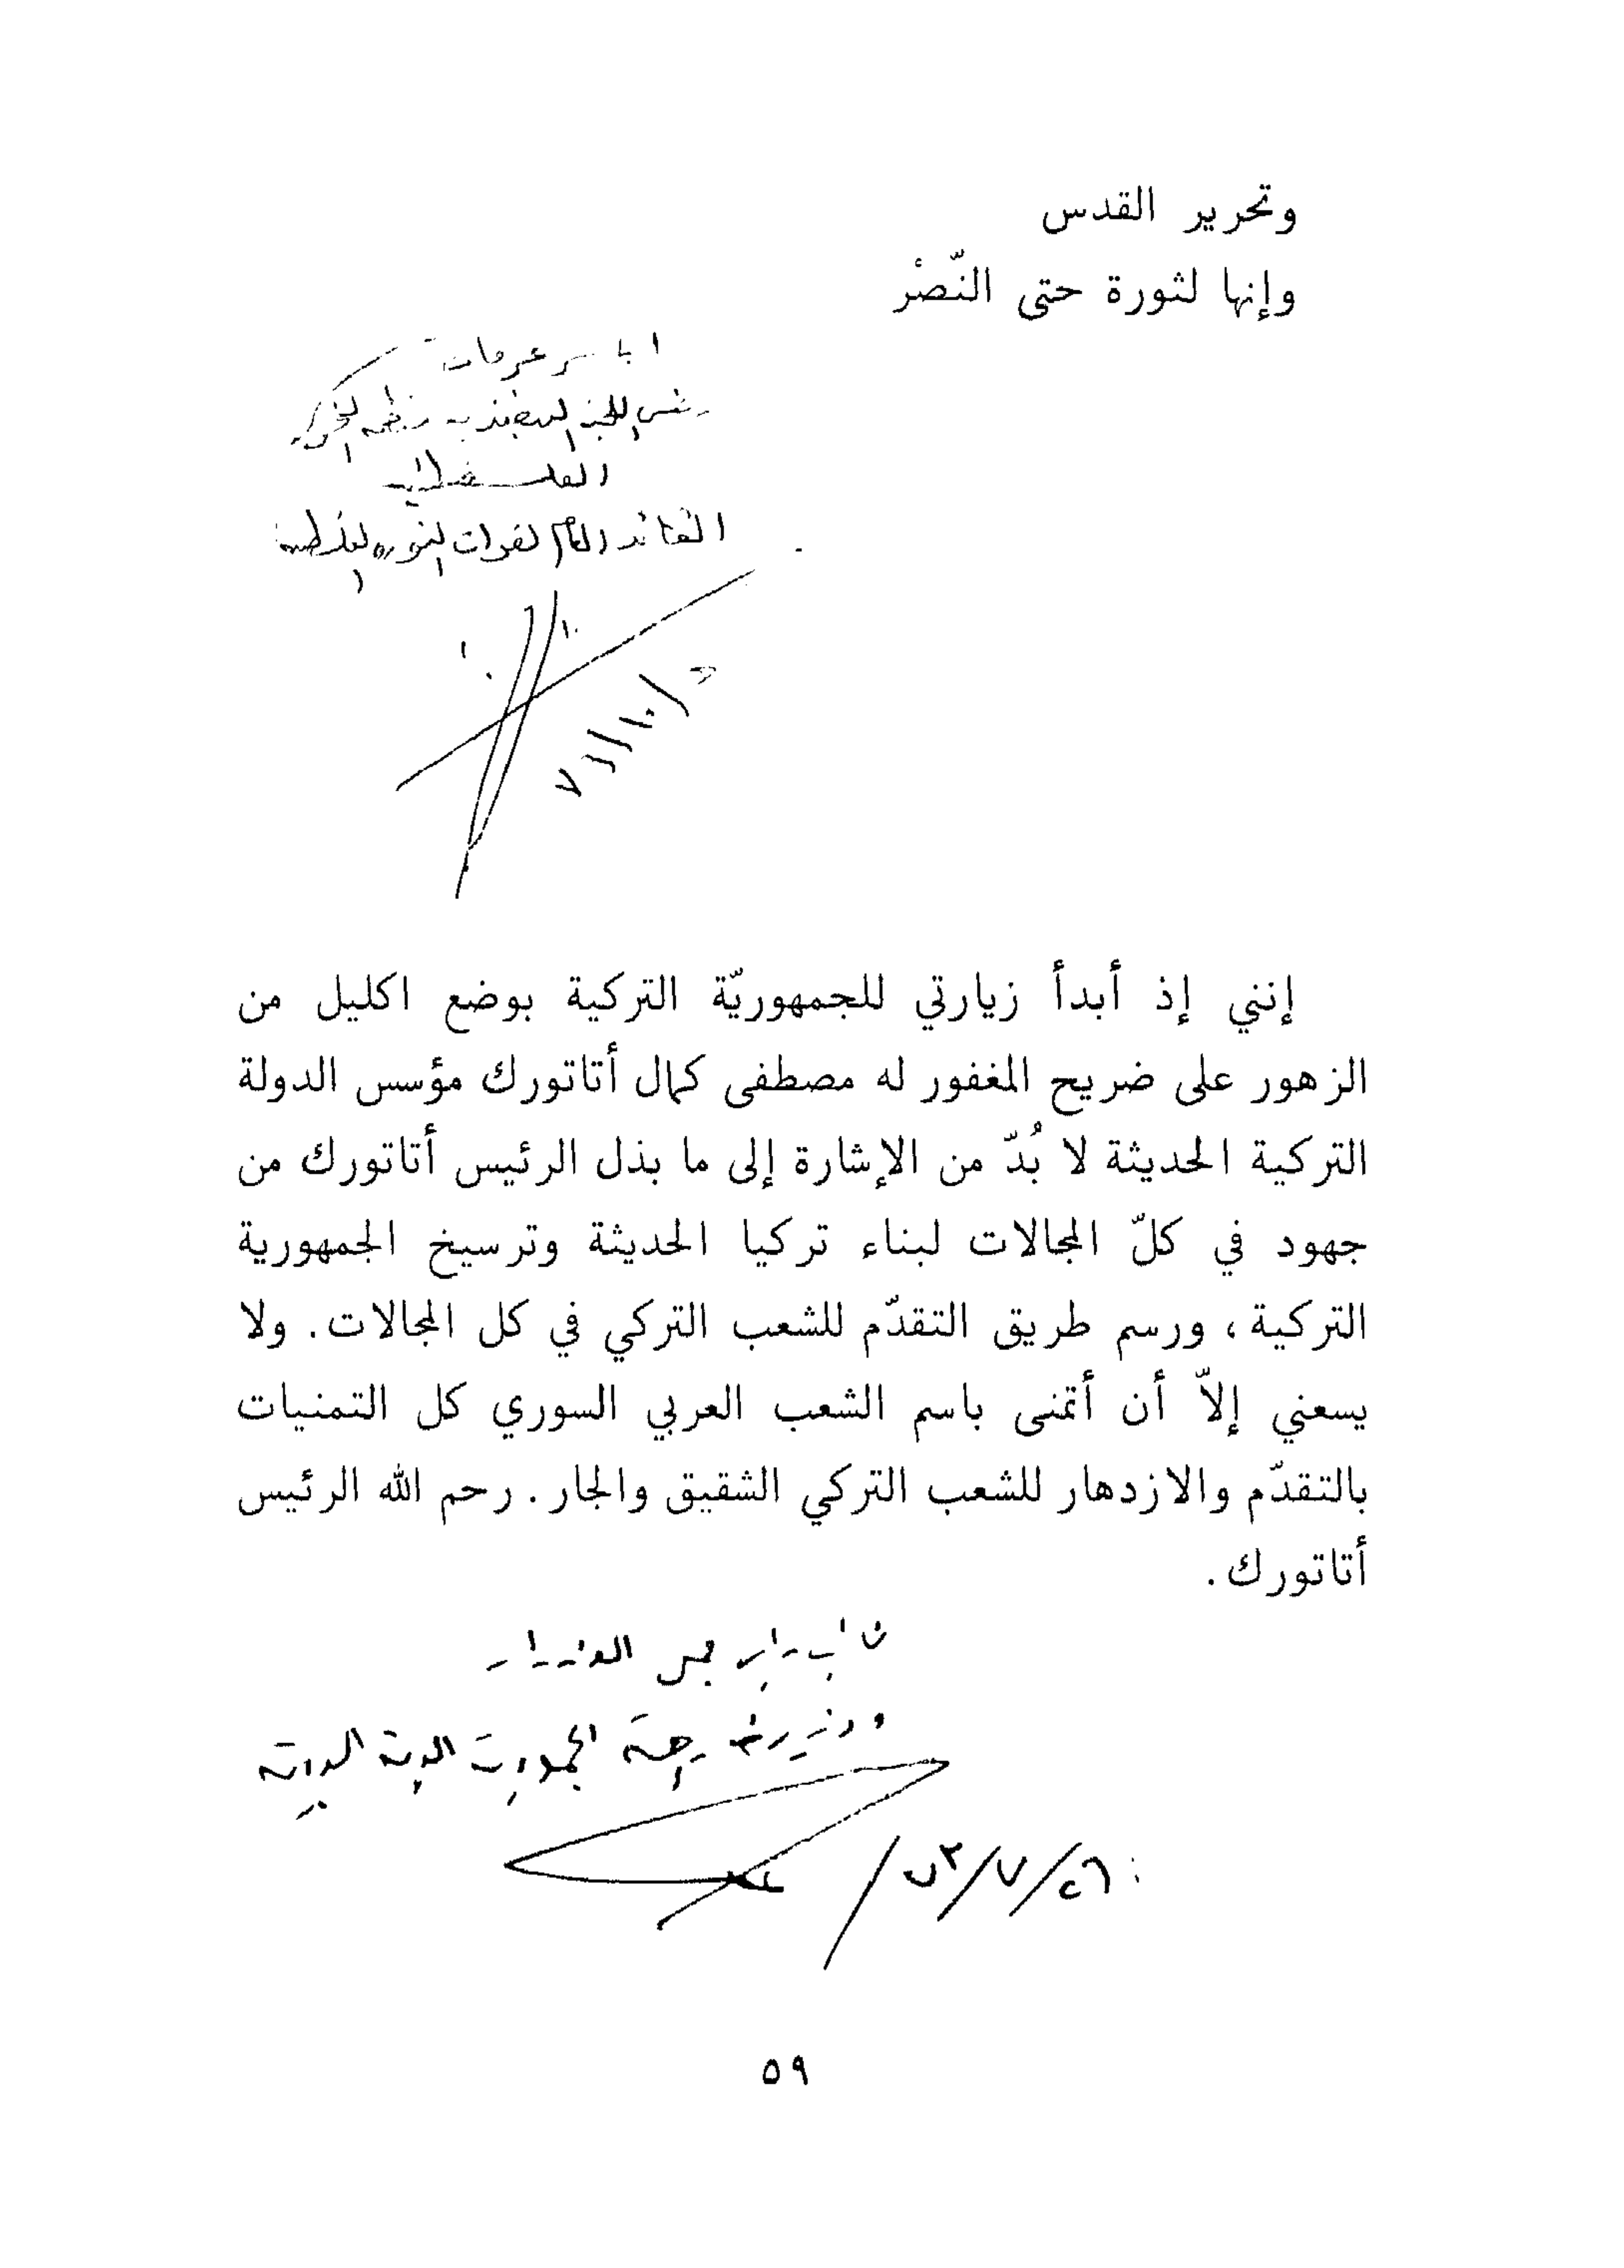 وتحرير القدس
وإنها لثورة حتى النّصْر
ياسر عرفات
اللجنة التنفيذية لمنظمة التحرير
الفلسطينية
القائد العام لقوات الثورة الفلسطينية
إنني إذ أبدأ زيارتي للجمهوريّة التركية بوضع اكليل من
الزهور على ضريح المغفور له مصطفى كمال أتاتورك مؤسس الدولة
التركية الحديثة لا بُدّ من الإشارة إلى ما بذل الرئيس أتاتورك من
جهود في كلّ المجالات لبناء تركيا الحديثة وترسيخ الجمهورية
التركية، ورسم طريق التقدّم للشعب التركي في كل المجالات. ولا
يسعني إلاّ أن أتمنى باسم الشعب العربي السوري كل التمنيات
بالتقدّم والازدهار للشعب التركي الشقيق والجار. رحم الله الرئيس
أتاتورك.
نائب رئيس مجلس الوزراء
وزير خارجية الجمهورية العربية السورية
٥٩